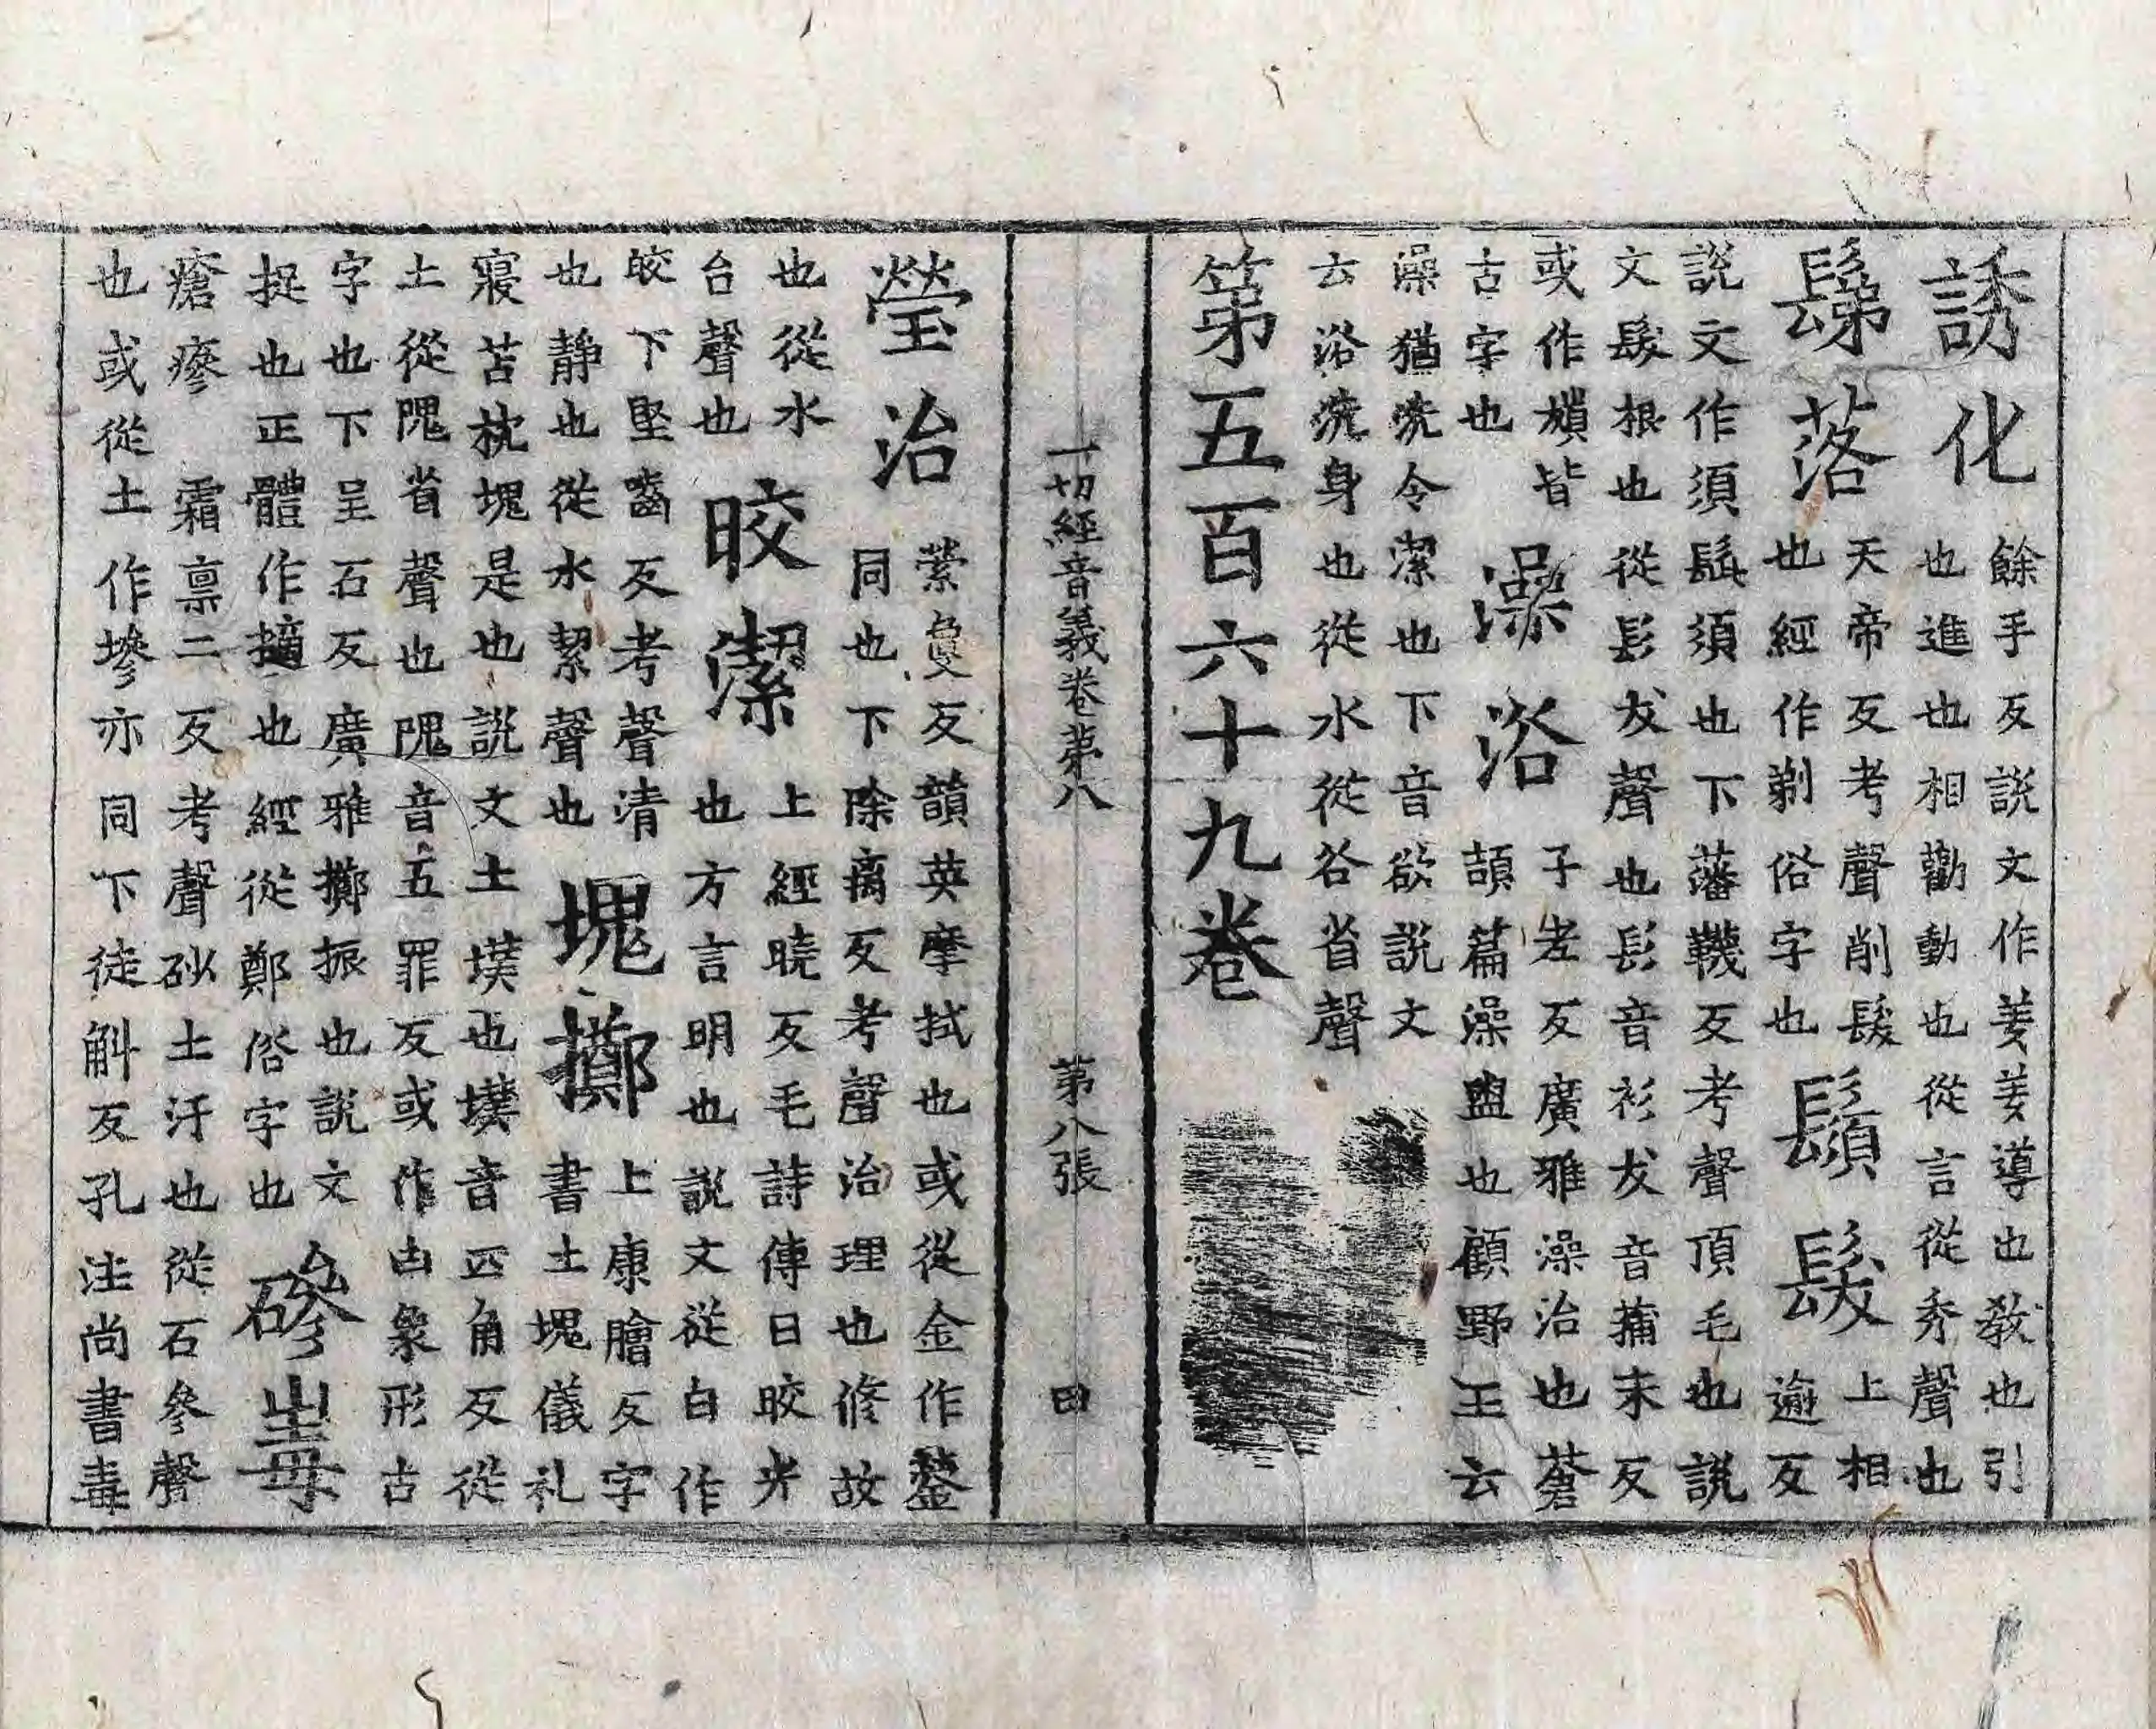 誘化
餘手反說文作羑羑導也教也引
也進也相勸動也從言從秀聲也
鬀落
天帝反考聲削髮
也經作剃俗字也
鬚髮
上相
逾反
說文作須須也下藩韈反考聲頂毛也說
文髮根也從髟犮聲也髟音衫犮音蒱末反
或作皆
古字也
澡浴
子老反廣雅澡治也蒼
頡篇澡盥也顧野王云
澡猶洗令潔也下音欲說文
云浴洗身也從水從谷省聲
第五百六十九卷
一切經音義卷第八 第八張 田
瑩治
縈夐反韻英摩拭也或從金作鎣
同也下除离反考聲治理也修故
也從水
台聲也
皎潔
上經曉反毛詩傳曰皎光
也方言明也說文從白作
皎下堅嚙反考聲清
也靜也從水絜聲也
塊擲
上康膾反字
書土塊儀礼
寢苫枕塊是也說文土墣也墣音匹角反從
土從隗省聲也隗音五罪反或作凷象形古
字也下呈石反廣雅擲振也說文
捉也正體作擿也經從鄭俗字也
磣毒
瘡瘮 霜稟二反考聲砂土汙也從石參聲
也或從土作墋亦同下徒斛反孔注尚書毒